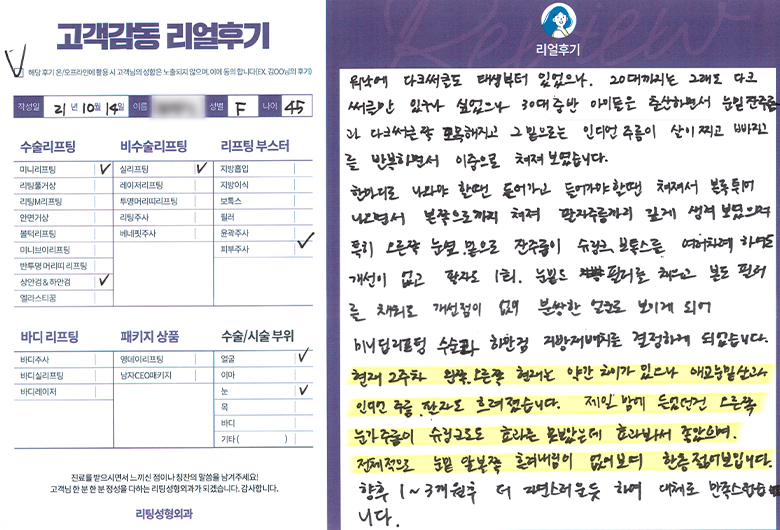 고객감동 리얼후기
해당 후기 온/오프라인에 활용 시 고객님의 성함은 노출되지 않으며, 이에 동의 합니다(EX, 김OO님의 후기)
작성일 21 년 10 월 14 일 이름 성별 F 나이 45
수술리프팅
미니리프팅
리팅풀거상
리팅M리프팅
안면거상
볼턱리프팅
미니브이리프팅
반투명 머리띠 리프팅
상안검 & 하안검
엘라스티꿈
비수술리프팅
실리프팅
레이저리프팅
투명머리띠리프팅
리팅주사
베네핏주사
리프팅 부스터
지방흡입
지방이식
보톡스
필러
윤곽주사
피부주사
바디 리프팅
바디주사
바디실리프팅
바디레이저
패키지 상품
명데이리프팅
남자CEO패키지
수술/시술 부위
얼굴
이마
눈
목
바디
기타 ( )
진료를 받으시면서 느끼신 점이나 칭찬의 말씀을 남겨주세요!
고객님 한 분 한 분 정성을 다하는 리팅성형외과가 되겠습니다. 감사합니다.
리팅성형외과
Review
리얼후기
워낙에 다크써클도 태생부터 있었으나. 20대까지는 그래도 다크
써클만 있구나 싶었으나 30대 중반 아이들은 출산하면서 눈밑 잔주름
과 다크써클쪽 도욱해지고 그 밑으로는 인디언 주름이 살이 찌고 빠지고
를 반복하면서 이중으로 쳐져 보였습니다.
한마디로 나와야 할땐 들어가고 들어가야 할땐 쳐져서 볼록 튀어
나오면서 볼쪽으로까지 쳐져 팔자주름까지 깊게 생겨 보였으며
특히 오른쪽 눈옆 많은 잔주름이 슈링크, 보톡스를 여러차례 하여도
개선이 없고 팔자도 1회. 눈밑도 필러를 채우고 볼도 필러
를 채워도 개선점이 없어 불쌍한 얼굴로 보이게 되어
미니딥리프팅 수술과 하안검 지방재배치를 결정하게 되었습니다.
현재 2주차 왼쪽. 오른쪽 현재는 약간 차이가 있으나 애교눈밑살과
인디언 주름. 팔자도 흐려졌습니다. 제일 맘에 든었던건 오른쪽
눈가주름이 슈링크로도 효과를 못봤는데 효과봐서 좋았으며.
전체적으로 눈밑 앞볼쪽 흘러내림이 없어보여 한층 젊어보입니다.
향후 1~3개월후 더 자연스러운듯 하여 대체로 만족스럽습
니다.